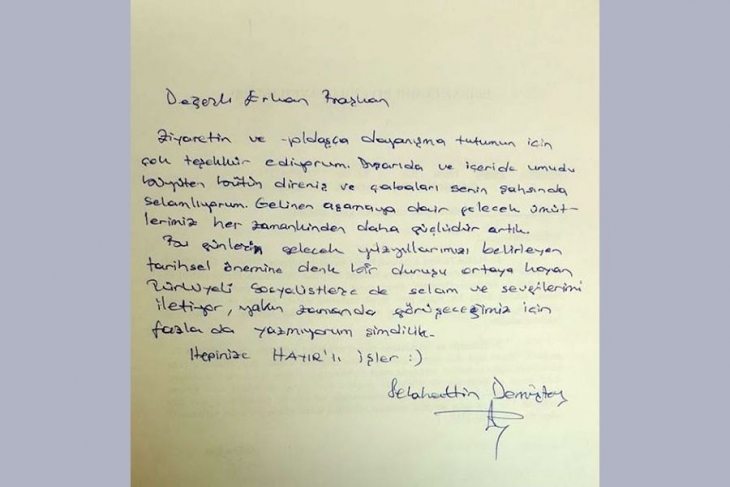 Değerli Erkan Başkan
Ziyaretin ve yoldaşça dayanışma tutumun için
çok teşekkür ediyorum. Dışarıda ve içeride umudu
büyüten bütün direniş ve çabaları senin şahsında
selamlıyorum. Gelinen aşamaya dair gelecek ümit-
lerimiz her zamankinden daha güçlüdür artık.
Bu günlerin gelecek yüzyıllarımızı belirleyen
tarihsel önemine denk bir duruşu ortaya koyan
Türkiyeli Sosyalistlere de selam ve sevgilerimi
iletiyor, yakın zamanda görüşeceğimiz için
fazla da yazmıyorum şimdilik.
Hepinize HAYIR'lı işler :)
Selahattin Demirtaş